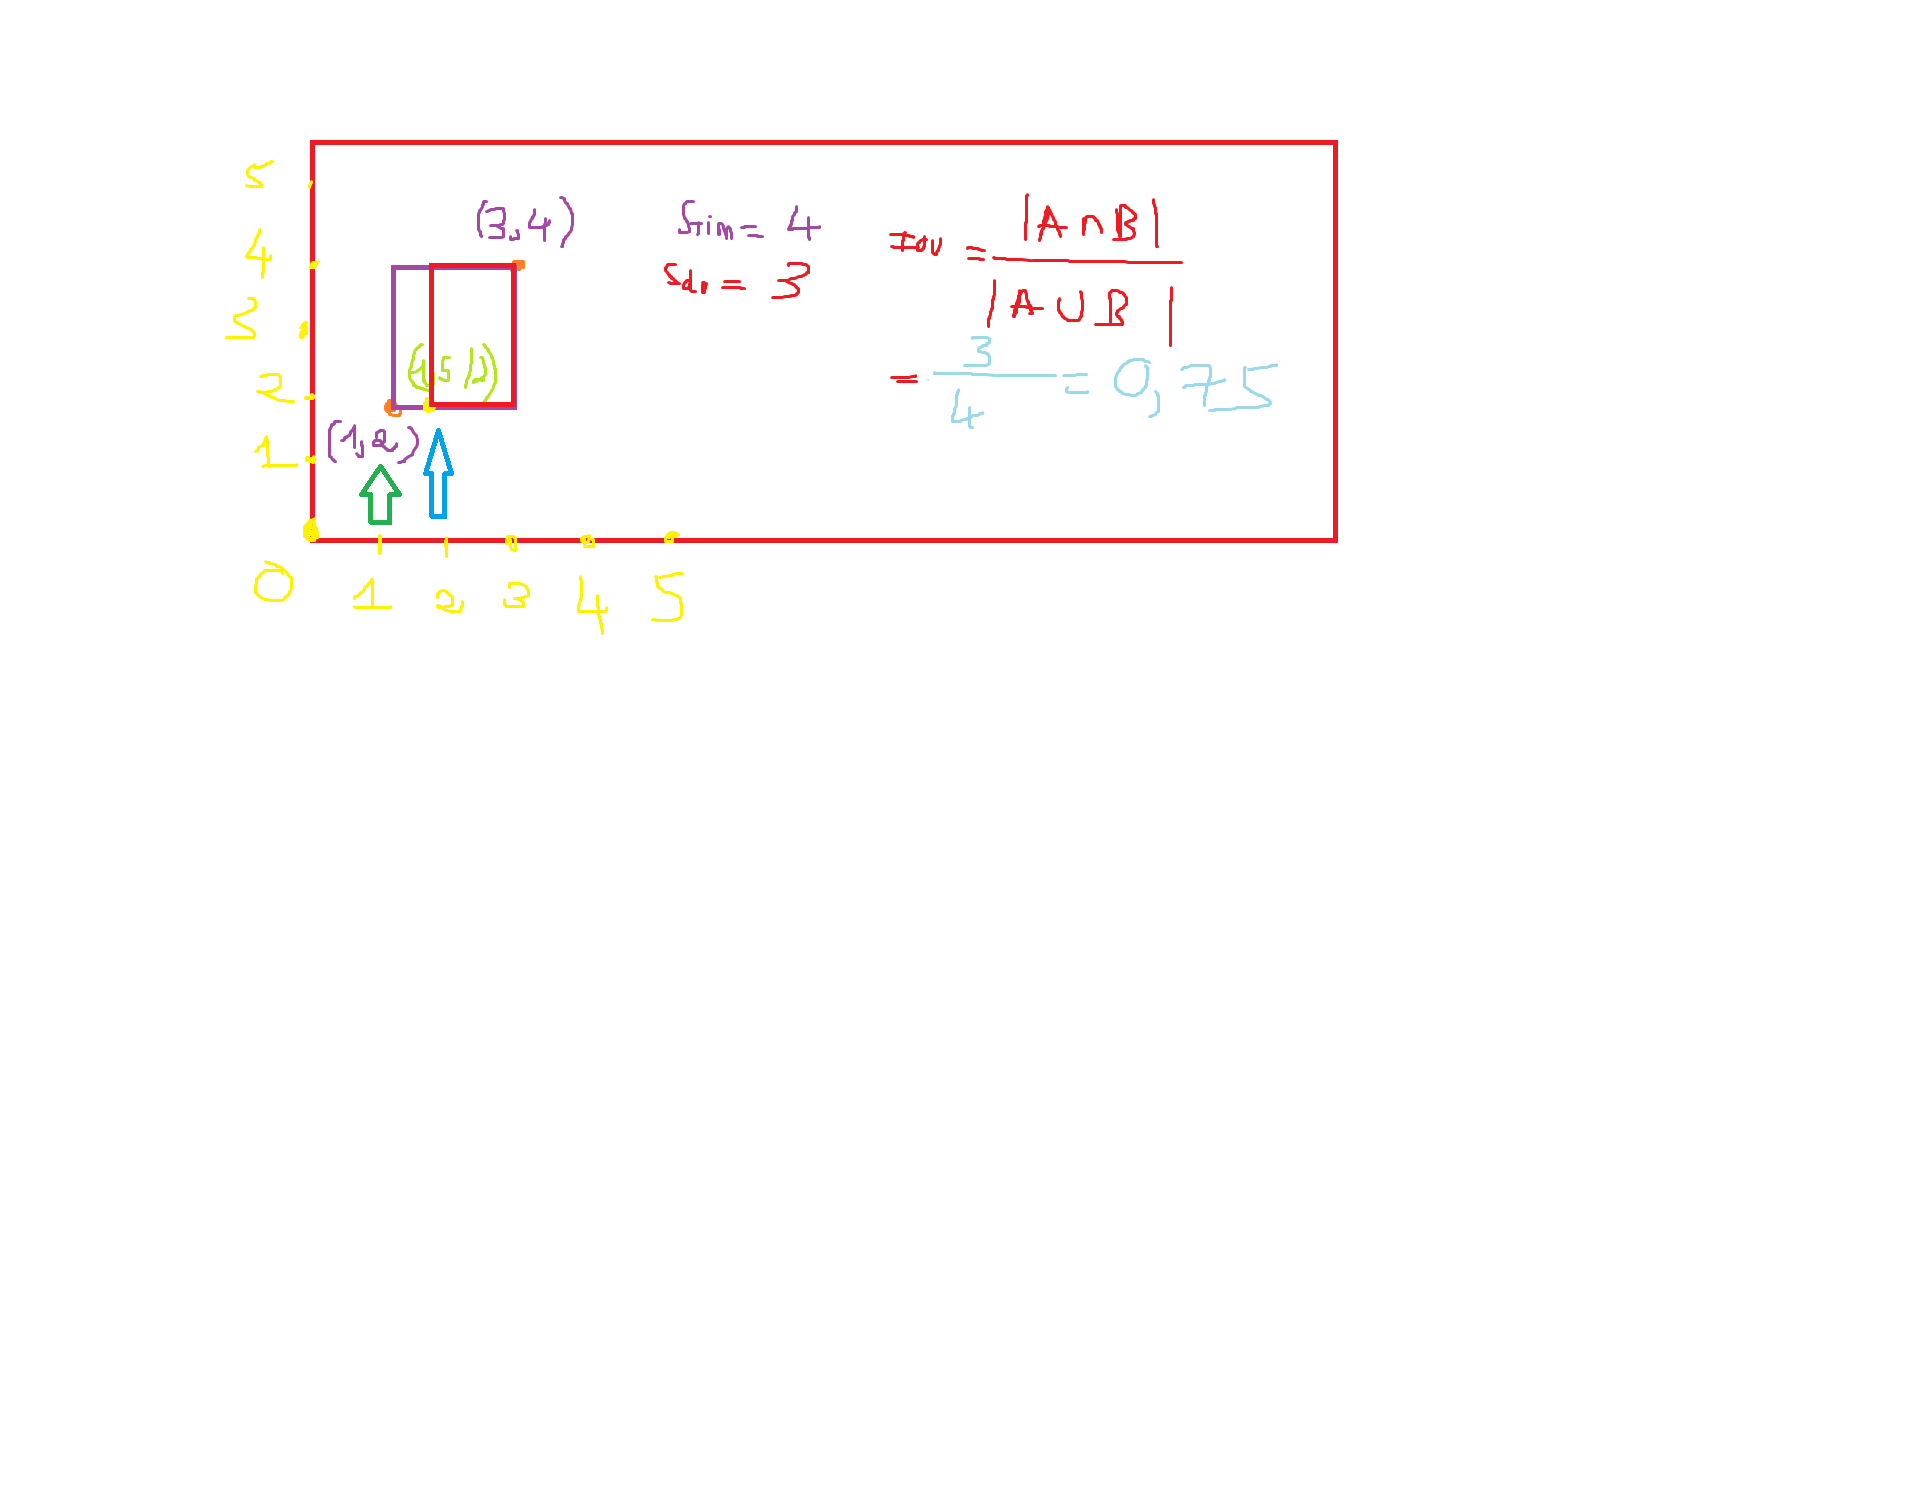 5
4
3
2
1
0 1 2 3 4 5
(3,4)
(1,5,2)
(1,2)
Stím = 4
Sđỏ = 3
IOU = |A∩B|
|A∪B|
= 3
4
= 0,75